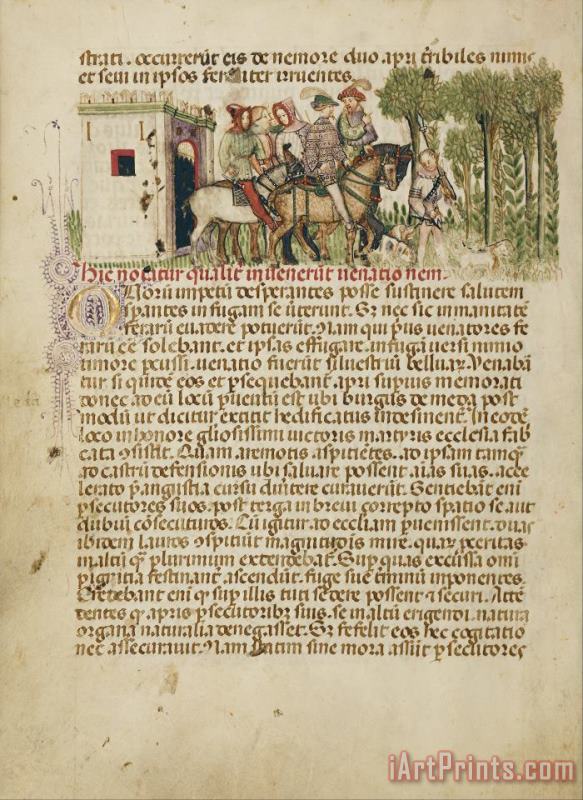 strati. occurrerūt eis de nemore duo apri tribiles nimis
et seui in ipsos feraliter irruentes.
Hic notatur qualit inuenerūt uenationem.
Quorū impetū desperantes posse sustinere salutem
spantes in fugam se uterunt. Sz nec sic inmanitatē
ferarū euadere potuerūt. Nam qui pus uenatores fe
rarū cē solebant. et ipsas effugare. in fugā uersi nimio
timore pcussi. uenatio fuerūt siluestriū belluaꝝ. Venabā
tur si quidē eos et psequebant apri supius memorati
donec ad eū locū puentū est ubi burgus de meda post
modū ut dicitur extitit hedificatus indesinent. In eodē
loco in honore gliosissimi uictoris martyris ecclesia fab
cata ꝯsistit. Quam aremotis aspitiētes. ad ipsam tamqͣ
ad castrū defensionis ubi saluare possent aīas suas. acce
lerato p angustia cursu diūtere curauerūt. Sentiebāt eni
psecutores suos. post terga in breui correpto spatio se aut
dubiū cōsecuturos. Cū igitur ad eccliam puenissent. duas
ibidem lauros ꝯspitiūt magnitudīs mire. quaꝝ ꝓceritas
in altū qͣ plurimum extendebat. Sup quas excussa omī
pigritia festinant ascendūt. fuge sue tminū inponentes.
Credebant eni ꝙ sup illis tuti sedere possent ⁊ securi. Attē
dentes ꝙ apris psecutoribꝫ suis. se in altū erigendi. natura
organa naturalia denegasset. Sz fefelit eos hec cogitatio
nec assecurauit. Nam statim sine mora assūt psecutores
iArtPrints.com